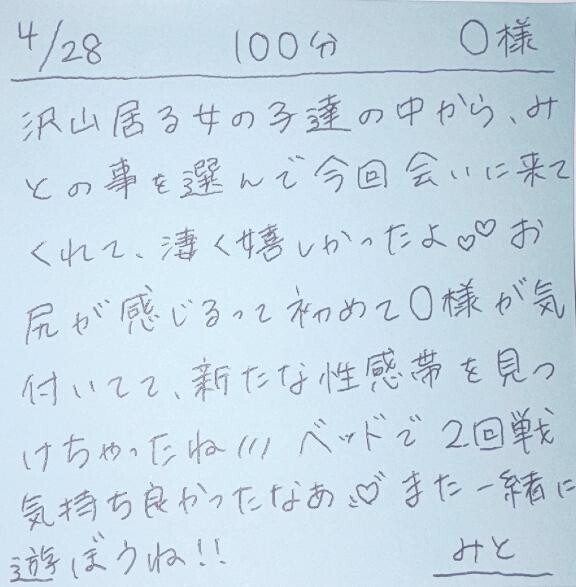 4/28 100分 〇様
沢山居る女の子達の中から、み
との事を選んで今回会いに来て
くれて、凄く嬉しかったよ♡♡お
尻が感じるって初めて〇様が気
付いてて、新たな性感帯を見つ
けちゃったね/// ベッドで2回戦
気持ち良かったなあ♡また一緒に
遊ぼうね!! みと